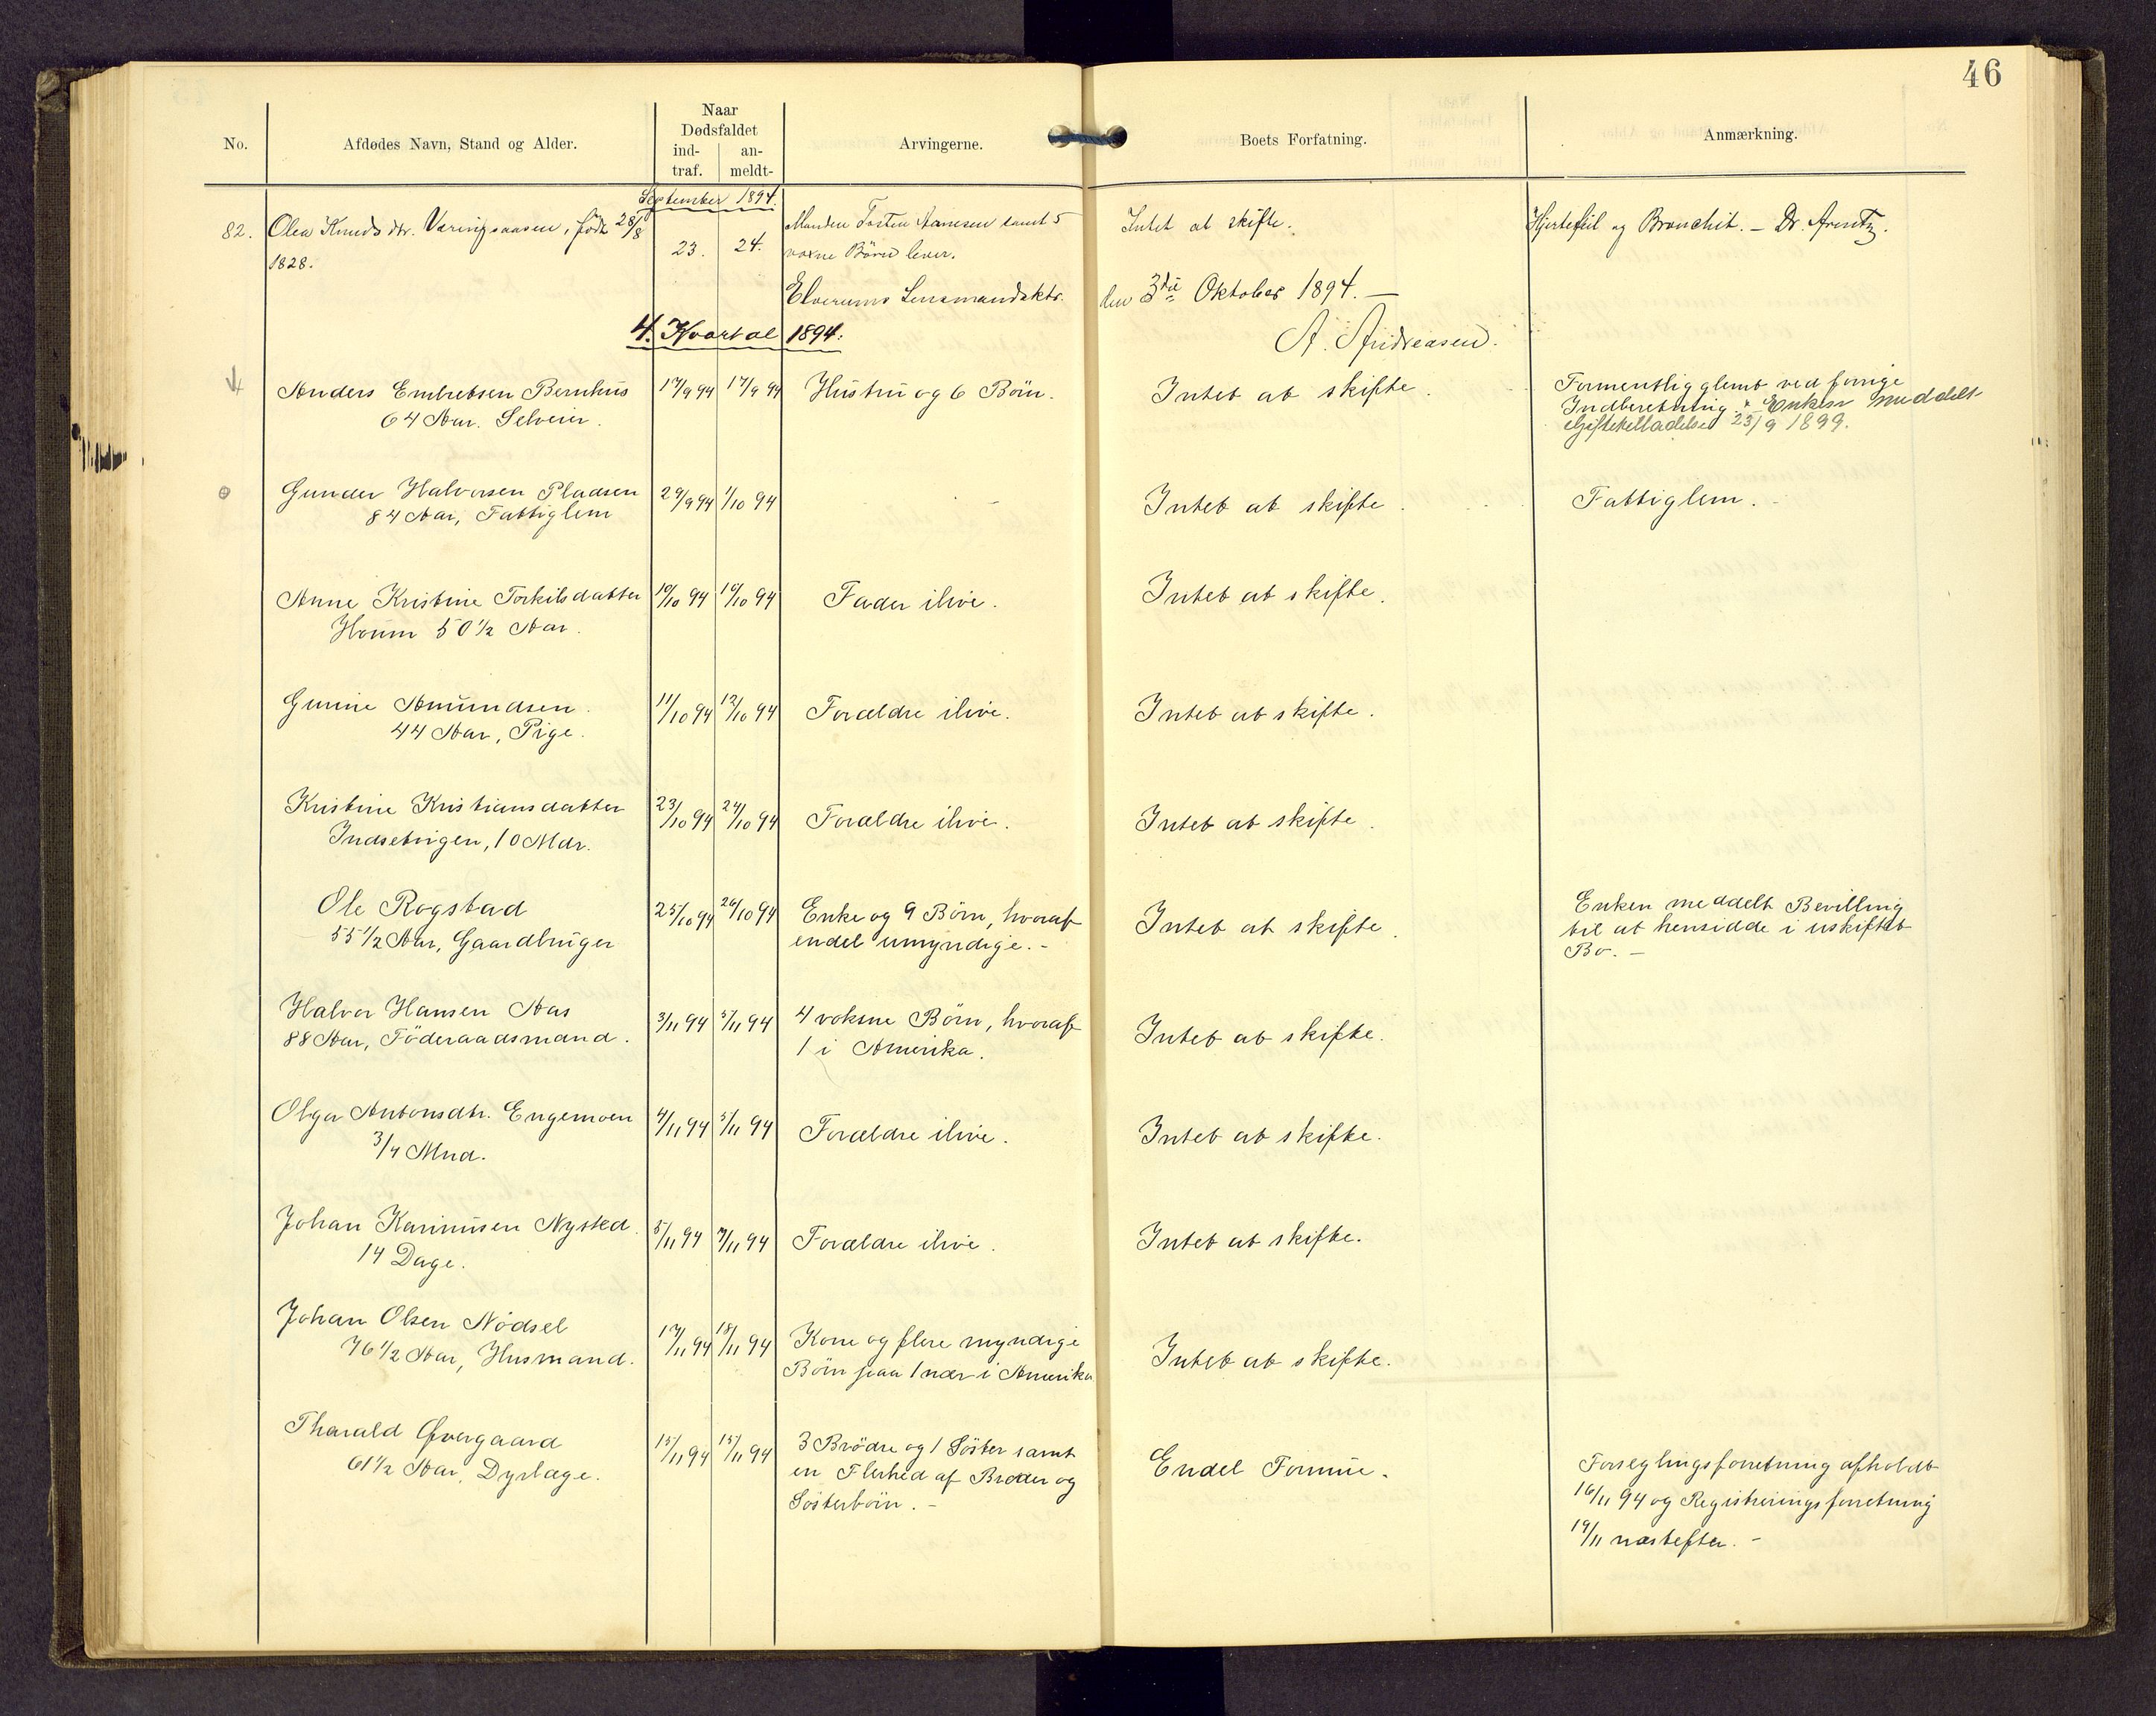 46
No.
Afdødes Navn, Stand og Alder.
Naar
Dødsfaldet
ind-
traf.
an-
meldt-
Arvingerne.
Boets Forfatning.
Anmærkning.
September 1894.
82. Olea Knudsdtr. Væringsaasen, født 28/8
1828.
23. 24.
Manden Tosten Aamesen samt 5
voxne Börn lever.
Intet at skifte.
Hjertefeil og Bronchit. – Dr. Arentz.
Elverums Lensmandsktr. den 3die Oktober 1894. –
A. Andreasen.
4. Kvartal 1894.
Anders Embretsen Bernhus
64 Aar. Selveier.
17/9 94 17/9 94
Hustru og 6 Börn.
Intet at skifte.
Formentlig glemt ved forrige
Indberetning. Enken meddelt
Giftetilladelse 23/9 1899.
Gunder Halvorsen Pladsen
84 Aar, Fattiglem
29/9 94 1/10 94
–
Intet at skifte.
Fattiglem. –
Anne Kristine Torkilsdatter
Houm 50 1/2 Aar.
10/10 94 10/10 94
Fader ilive.
Intet at skifte.
Gunine Amundsen.
44 Aar, Pige.
11/10 94 12/10 94
Forældre ilive.
Intet at skifte.
Kristine Kristiansdatter
Indsetvigen, 10 Mdr.
23/10 94 24/10 94
Forældre ilive.
Intet at skifte.
Ole Rogstad
55 1/2 Aar, Gaardbruger
25/10 94 26/10 94
Enke og 9 Börn, hvoraf
endel umyndige. –
Intet at skifte.
Enken meddelt Bevilling
til at hensidde i uskiftet
Bo. –
Halvor Hansen Aas
88 Aar, Föderaadsmand.
3/11 94 5/11 94
4 voksne Börn, hvoraf
1 i Amerika.
Intet at skifte.
Olga Antonsdtr. Engemoen
3/4 Mnd.
4/11 94 5/11 94
Forældre ilive.
Intet at skifte.
Johan Karinusen Nysted.
14 Dage.
5/11 94 7/11 94
Forældre ilive.
Intet at skifte.
Johan Olsen Nödsel
76 1/2 Aar, Husmand.
17/11 94 18/11 94
Kone og flere myndige
Börn paa 1 nær i Amerika
Intet at skifte.
Tharald Övergaard
61 1/2 Aar, Dyrlæge.
15/11 94 15/11 94
3 Brödre og 1 Söster samt
en Flerhed af Broder og
Sösterbörn. –
Endel Formue.
Forseglingsforretning afholdt
16/11 94 og Registreringsforretning
19/11 næstefter. –